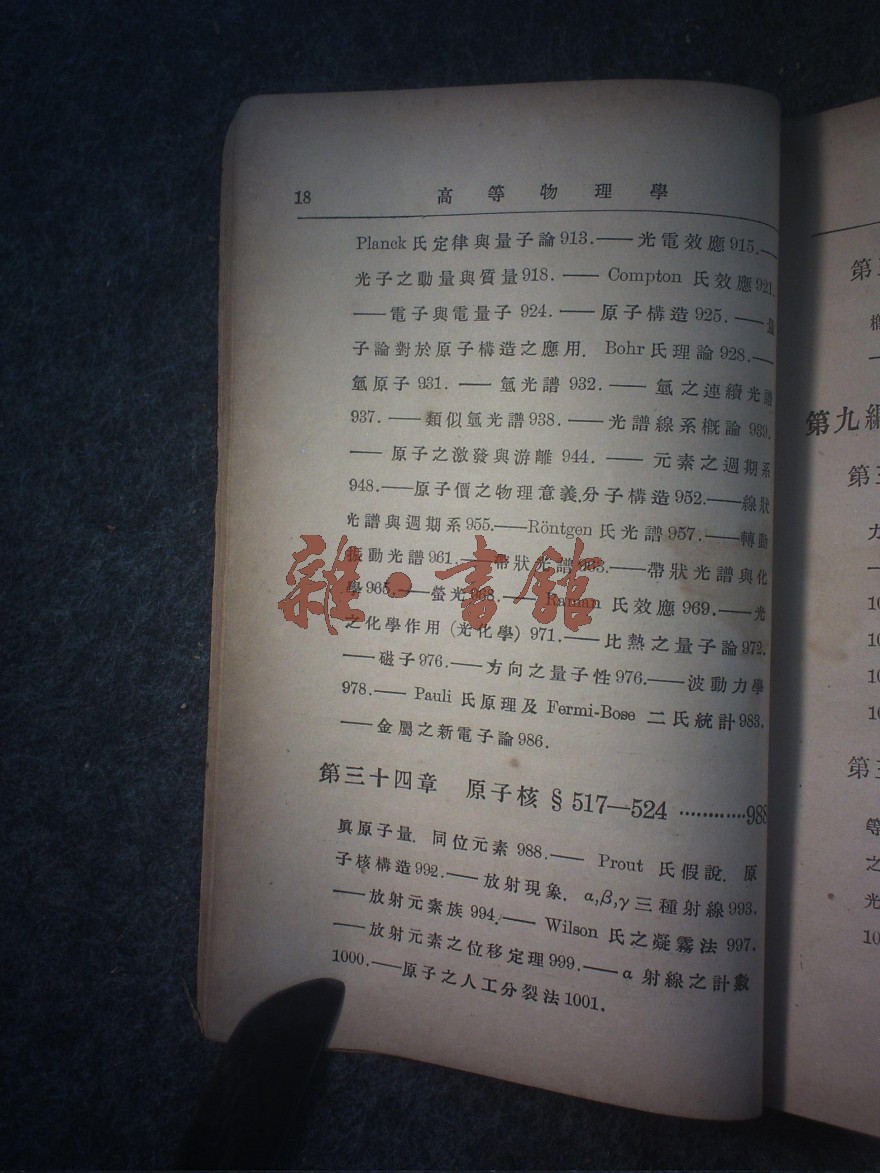 18 高等物理學
Planck 氏定律與量子論 913.——光電效應 915.——
光子之動量與質量 918. —— Compton 氏效應 921.
——電子與電量子 924. —— 原子構造 925. —— 量
子論對於原子構造之應用. Bohr 氏理論 928.——
氫原子 931. —— 氫光譜 932. —— 氫之連續光譜
937. ——類似氫光譜 938. ——光譜線系概論 939.
—— 原子之激發與游離 944. —— 元素之週期系
948.——原子價之物理意義.分子構造 952.——線狀
光譜與週期系 955.——Röntgen 氏光譜 957. ——轉動
振動光譜 961.——帶狀光譜 963.——帶狀光譜與化
學 965.——螢光 968.—— Raman 氏效應 969.——光
之化學作用 (光化學) 971.——比熱之量子論 972.
——磁子 976.——方向之量子性 976.——波動力學
978.—— Pauli 氏原理及 Fermi-Bose 二氏統計 983.
——金屬之新電子論 986.
第三十四章 原子核 § 517—524 ············988
眞原子量. 同位元素 988.—— Prout 氏假說. 原
子核構造 992.——放射現象. α,β,γ 三種射線 993.
——放射元素族 994.—— Wilson 氏之凝霧法 997.
——放射元素之位移定理 999.——α 射線之計數
1000.——原子之人工分裂法 1001.
雜·書館
第
第九編
第三
10
10
10
10
第三
等
之
光
10